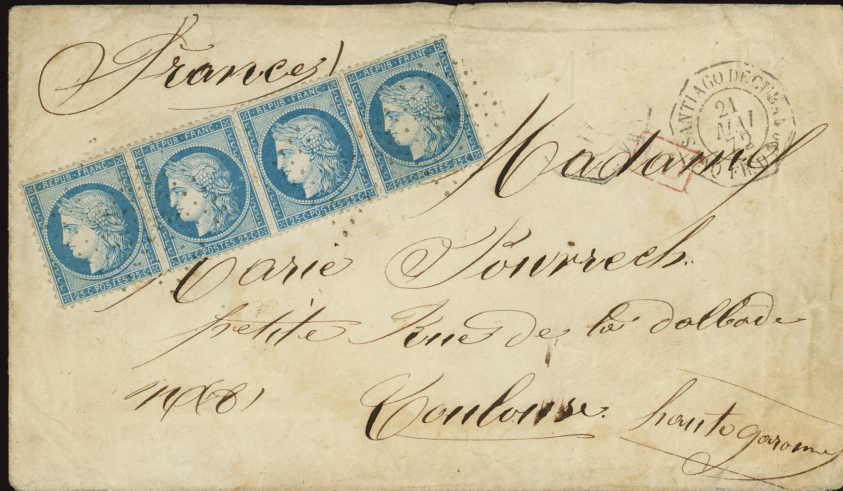 France
REPUB · FRANC
25 C POSTES 25 C
REPUB · FRANC
25 C POSTES 25 C
REPUB · FRANC
25 C POSTES 25 C
REPUB · FRANC
25 C POSTES 25 C
SANTIAGO DE CUBA
21
MAI
Madame
Marie Pourrech
petite Rue de la dalbade
Toulouse
haute garonne